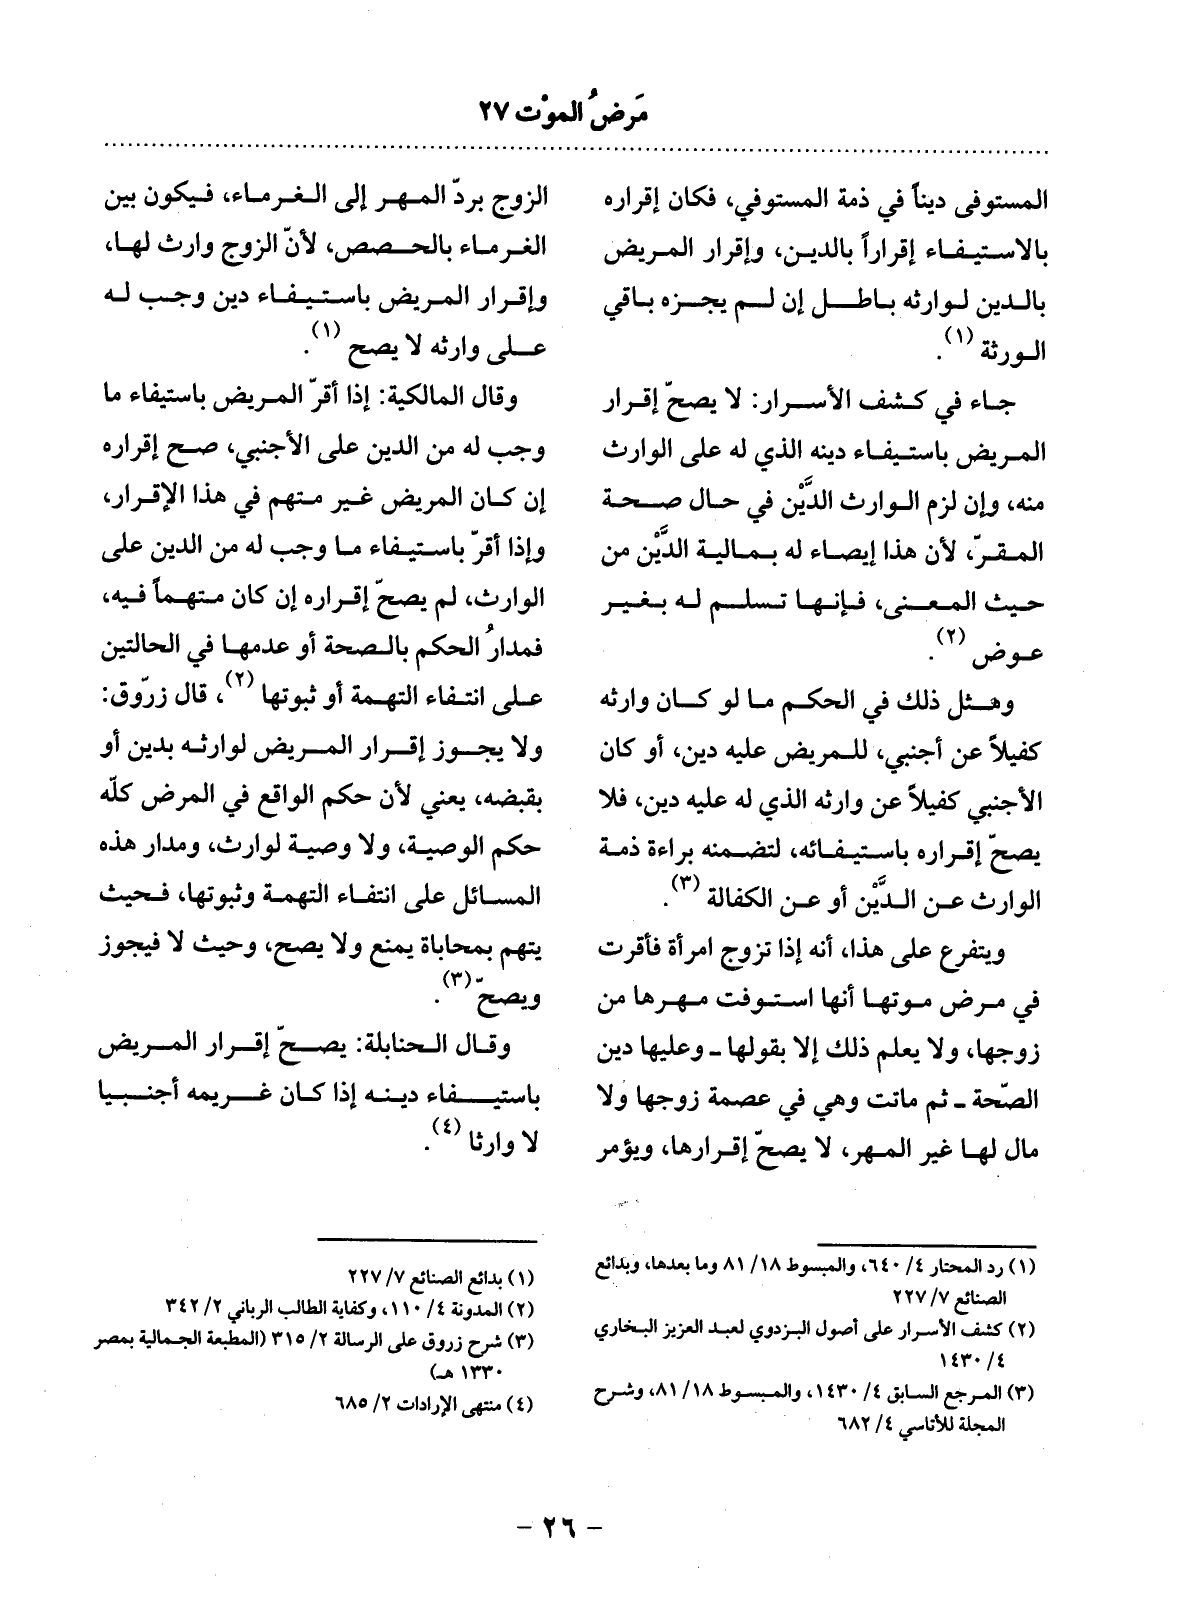 مَرَضُ الموْت ٢٧
المستوفى ديناً في ذمة المستوفي، فكان إقراره
بالاستيفاء إقراراً بالدين، وإقرار المريض
بالدين لوارثه باطل إن لم يجزه باقي
الورثة (١).
جاء في كشف الأسرار: لا يصحّ إقرار
المريض باستيفاء دينه الذي له على الوارث
منه، وإن لزم الوارث الدَّيْن في حال صحة
المقرّ، لأن هذا إيصاء له بمالية الدَّيْن من
حيث المعنى، فإنها تسلم له بغير
عوض (٢).
ومثل ذلك في الحكم ما لو كان وارثه
كفيلاً عن أجنبي، للمريض عليه دين، أو كان
الأجنبي كفيلاً عن وارثه الذي له عليه دين، فلا
يصحّ إقراره باستيفائه، لتضمنه براءة ذمة
الوارث عن الدَّيْن أو عن الكفالة (٣).
ويتفرع على هذا، أنه إذا تزوج امرأة فأقرت
في مرض موتها أنها استوفت مهرها من
زوجها، ولا يعلم ذلك إلا بقولها ـ وعليها دين
الصّحة ـ ثم ماتت وهي في عصمة زوجها ولا
مال لها غير المهر، لا يصحّ إقرارها، ويؤمر
(١) رد المحتار ٤/ ٦٤٠، والمبسوط ١٨/ ٨١ وما بعدها، وبدائع
الصنائع ٧/ ٢٢٧
(٢) كشف الأسرار على أصول البزدوي لعبد العزيز البخاري
٤/ ١٤٣٠
(٣) المرجع السابق ٤/ ١٤٣٠، والمبسوط ١٨/ ٨١، وشرح
المجلة للأتاسي ٤/ ٦٨٢
الزوج بردّ المهر إلى الغرماء، فيكون بين
الغرماء بالحصص، لأنّ الزوج وارث لها،
وإقرار المريض باستيفاء دين وجب له
على وارثه لا يصح (١).
وقال المالكية: إذا أقرّ المريض باستيفاء ما
وجب له من الدين على الأجنبي، صح إقراره
إن كان المريض غير متهم في هذا الإقرار،
وإذا أقرّ باستيفاء ما وجب له من الدين على
الوارث، لم يصحّ إقراره إن كان متهماً فيه،
فمدارُ الحكم بالصحة أو عدمها في الحالتين
على انتفاء التهمة أو ثبوتها (٢)، قال زرّوق:
ولا يجوز إقرار المريض لوارثه بدين أو
بقبضه، يعني لأن حكم الواقع في المرض كلّه
حكم الوصية، ولا وصية لوارث، ومدار هذه
المسائل على انتفاء التهمة وثبوتها، فحيث
يتهم بمحاباة يمنع ولا يصح، وحيث لا فيجوز
ويصحّ (٣).
وقال الحنابلة: يصحّ إقرار المريض
باستيفاء دينه إذا كان غريمه أجنبيا
لا وارثا (٤).
(١) بدائع الصنائع ٧/ ٢٢٧
(٢) المدونة ٤/ ١١٠، وكفاية الطالب الرباني ٢/ ٣٤٢
(٣) شرح زروق على الرسالة ٢/ ٣١٥ (المطبعة الجمالية بمصر
١٣٣٠ هـ)
(٤) منتهى الإرادات ٢/ ٦٨٥
– ٢٦ –